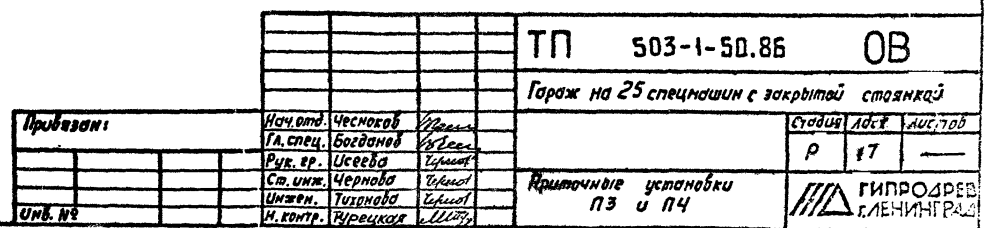 ТП 503-1-50.86 ОВ
Гараж на 25 спецмашин с закрытой стоянкой
Привязан:
Инв. №
Нач. отд. Чесноков
Гл. спец. Богданов
Рук. гр. Исеева
Ст. инж. Чернова
Инжен. Тихонова
Н. контр. Турецкая
Стадия Лист Листов
Р 17 —
Приточные установки
П3 и П4
ГИПРОДРЕВ
г. ЛЕНИНГРАД